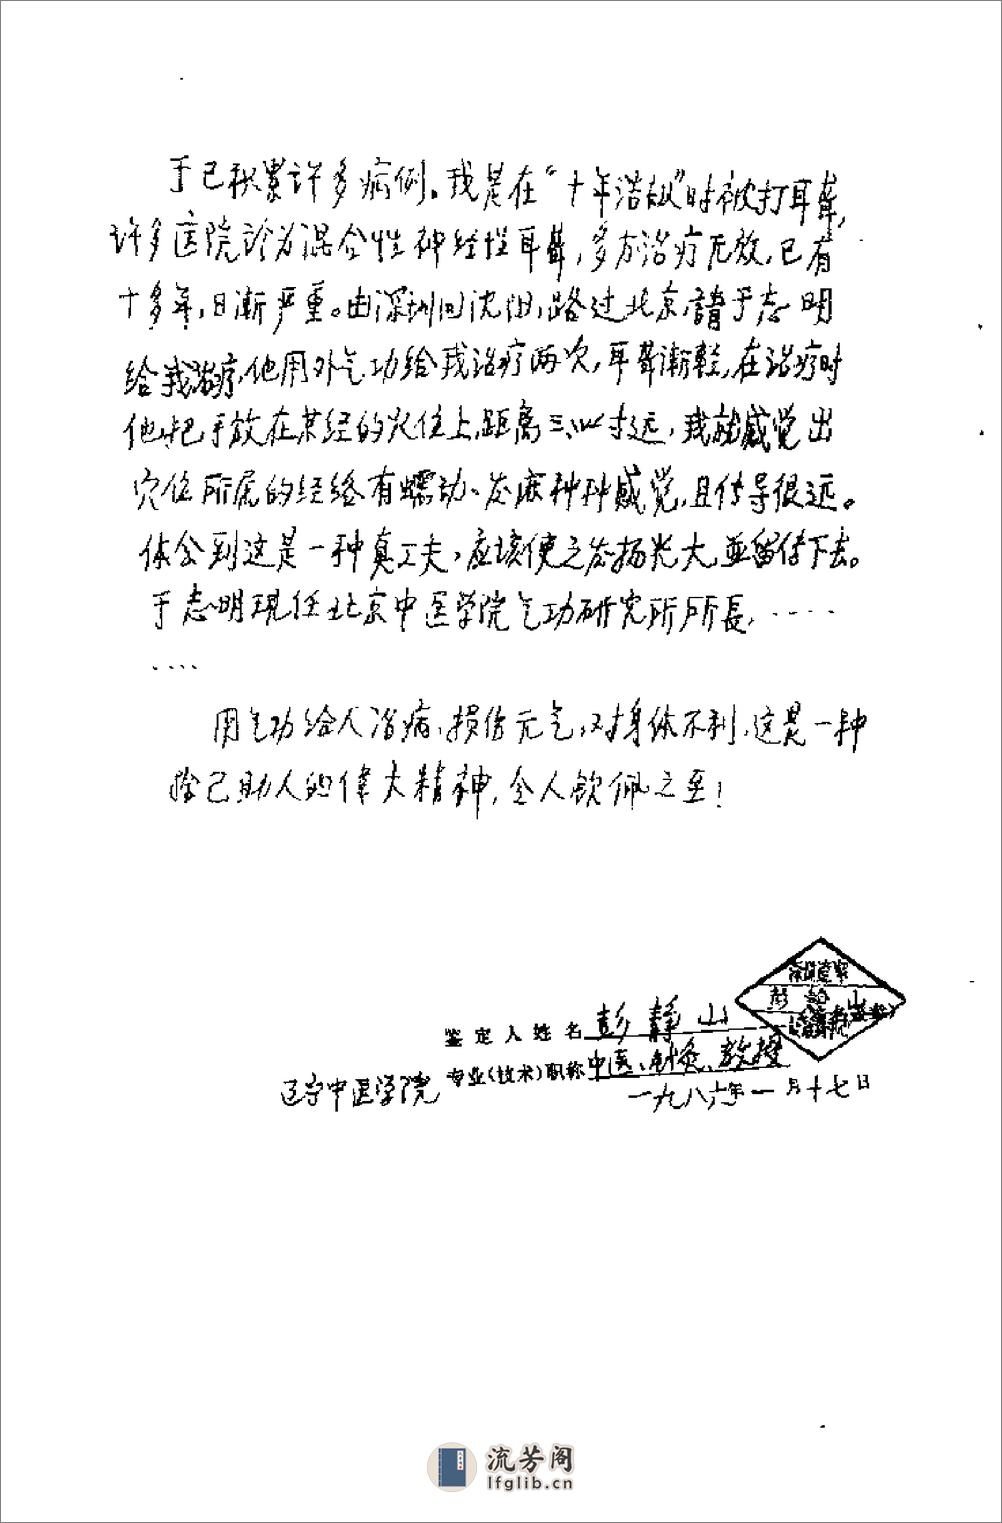 于已积累许多病例。我是在“十年浩劫”时被打耳聋,
许多医院诊为混合性神经性耳聋,多方治疗无效,已有
十多年,日渐严重。由深圳回沈阳,路过北京,請于志明
给我治疗,他用外气功给我治疗两次,耳聋渐轻,在治疗时
他把手放在某经的穴位上,距离三、四寸远,我就感觉出
穴位所属的经络有蠕动、发麻种种感觉,且传导很远。
体会到这是一种真工夫,应该使之发扬光大,並留传下去。
于志明現任北京中医学院气功研究所所長,……
……
用气功给人治病,损伤元气,对身体不利,这是一种
捨己助人的偉大精神,令人钦佩之至!
鉴定人姓名 彭静山
辽宁中医学院 专业(技术)职称 中医、针灸、教授
一九八六年一月十七日
流芳阁
lfglib.cn